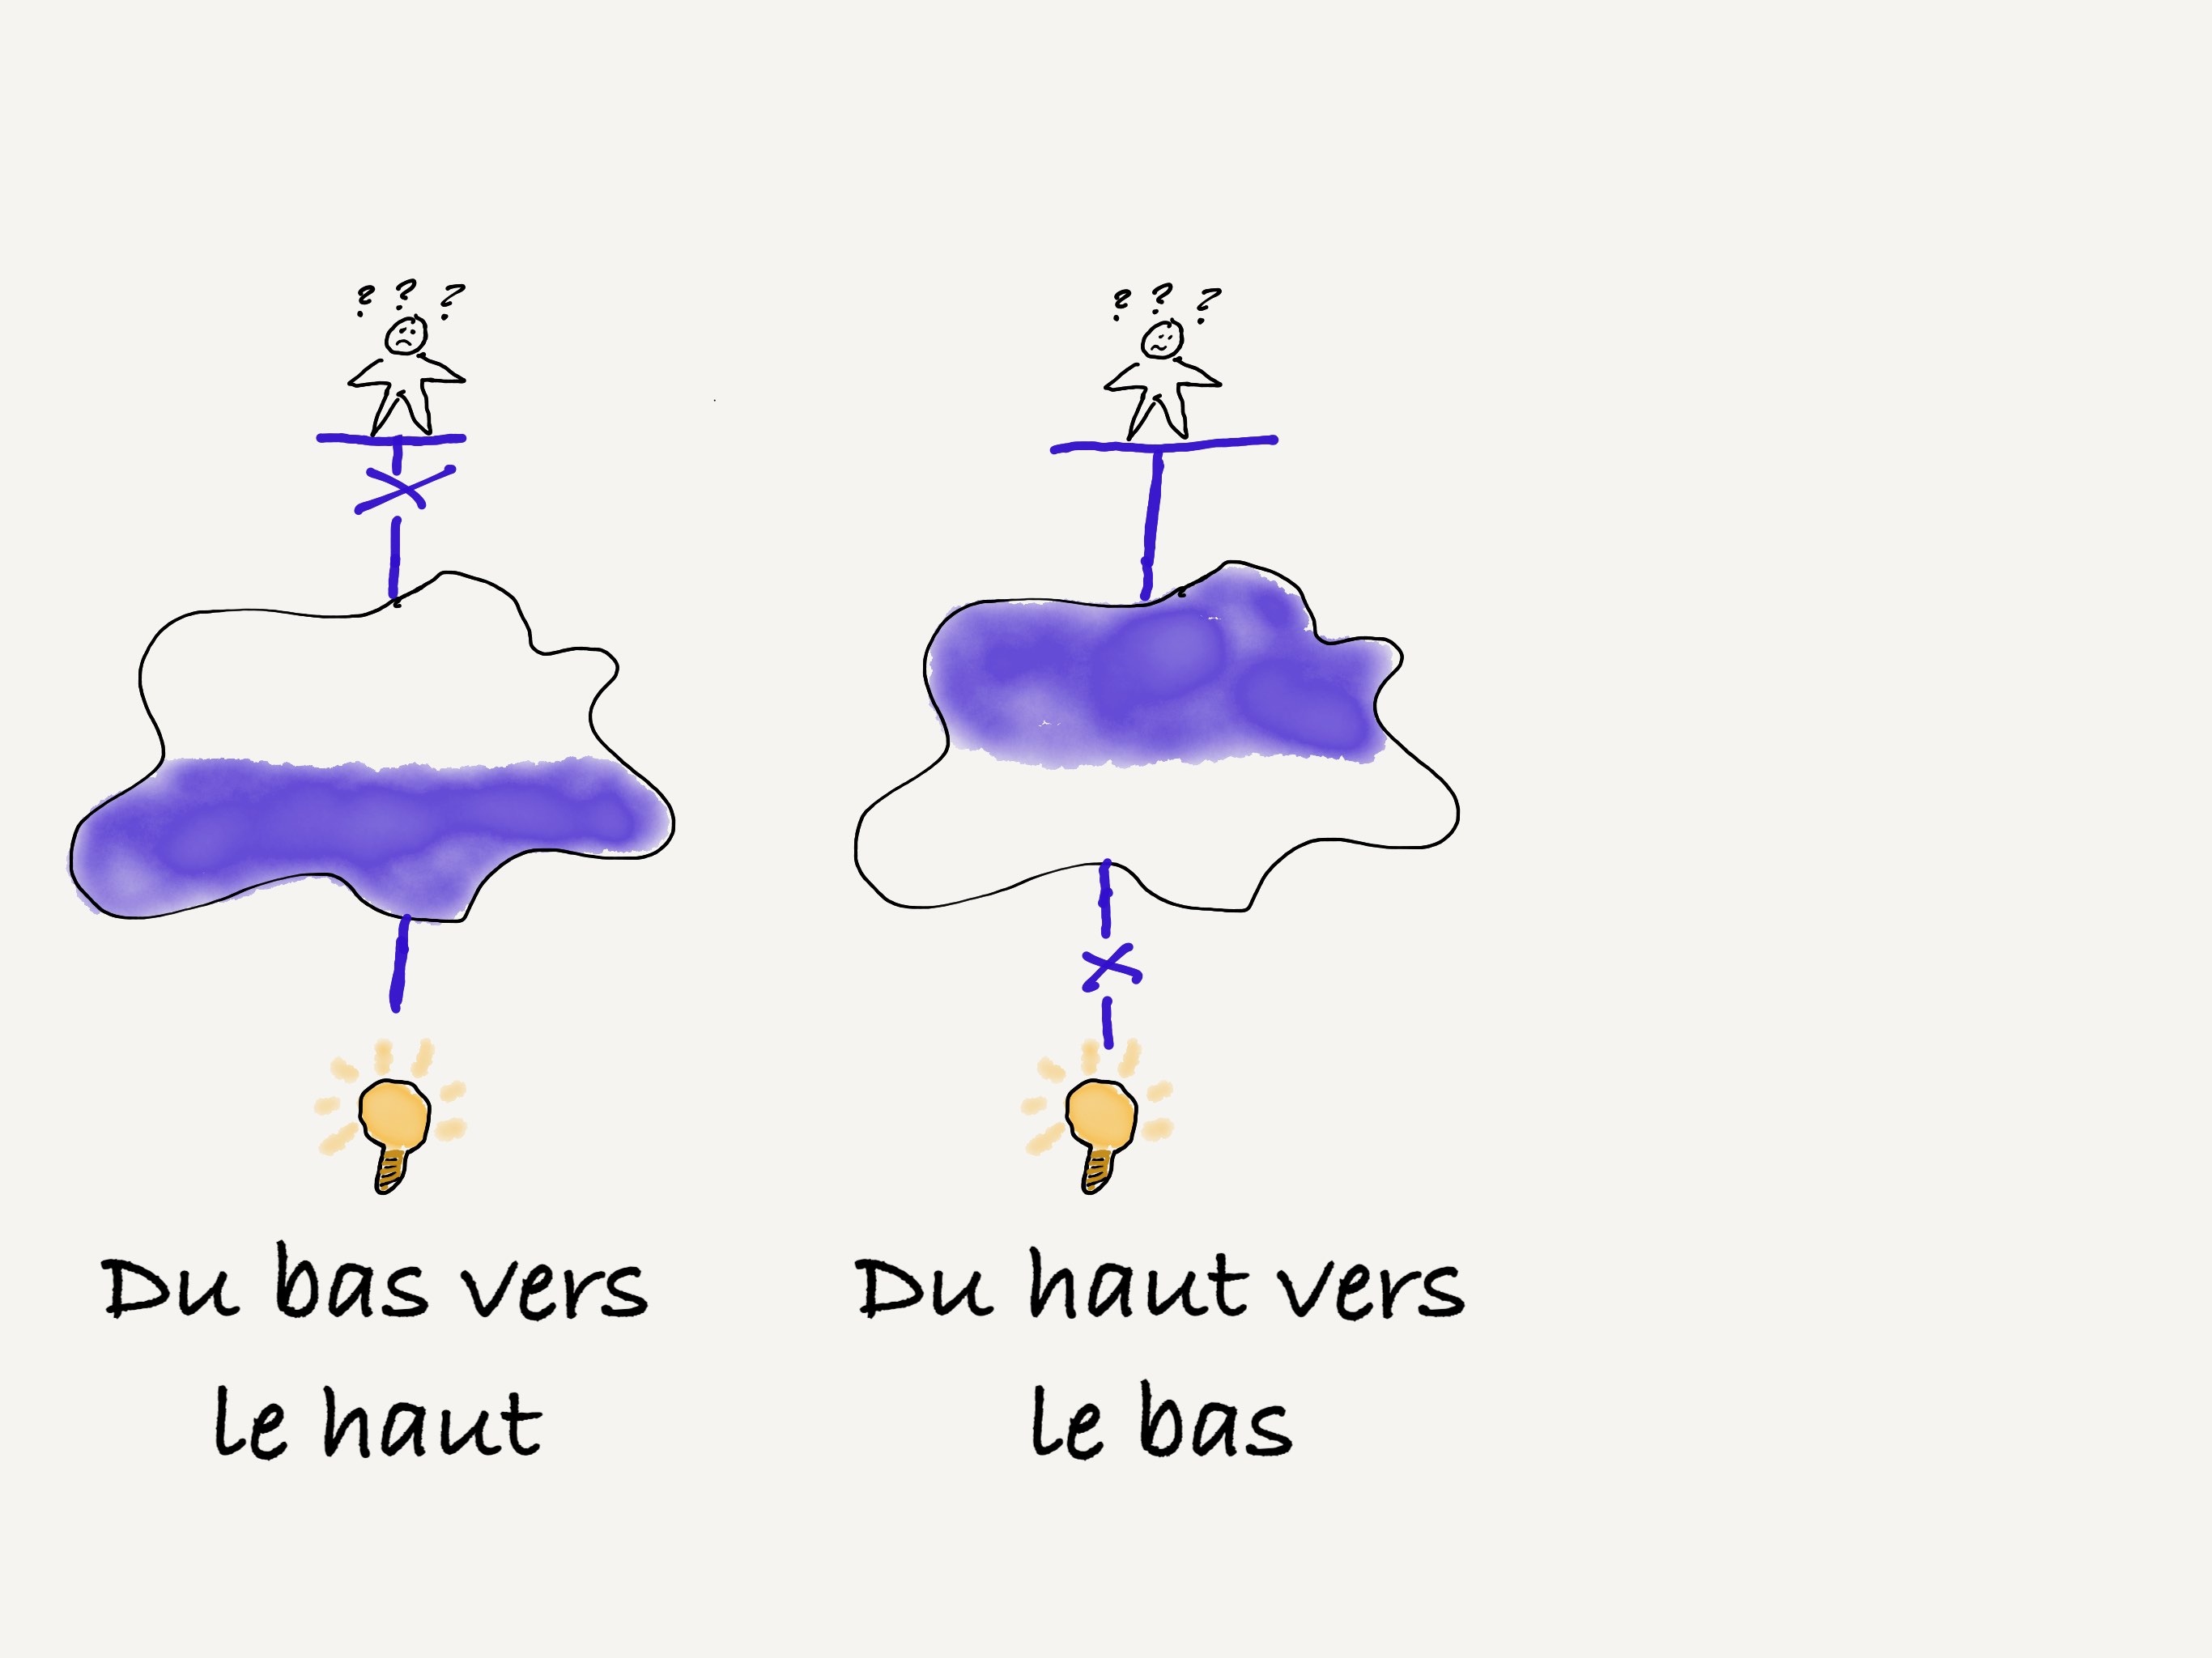 ? ? ?
? ? ?
Du bas vers
le haut
Du haut vers
le bas